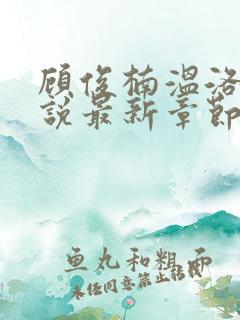 顾俊楠温洛
说最新章节
鱼丸和粗面
未经同意禁止转载